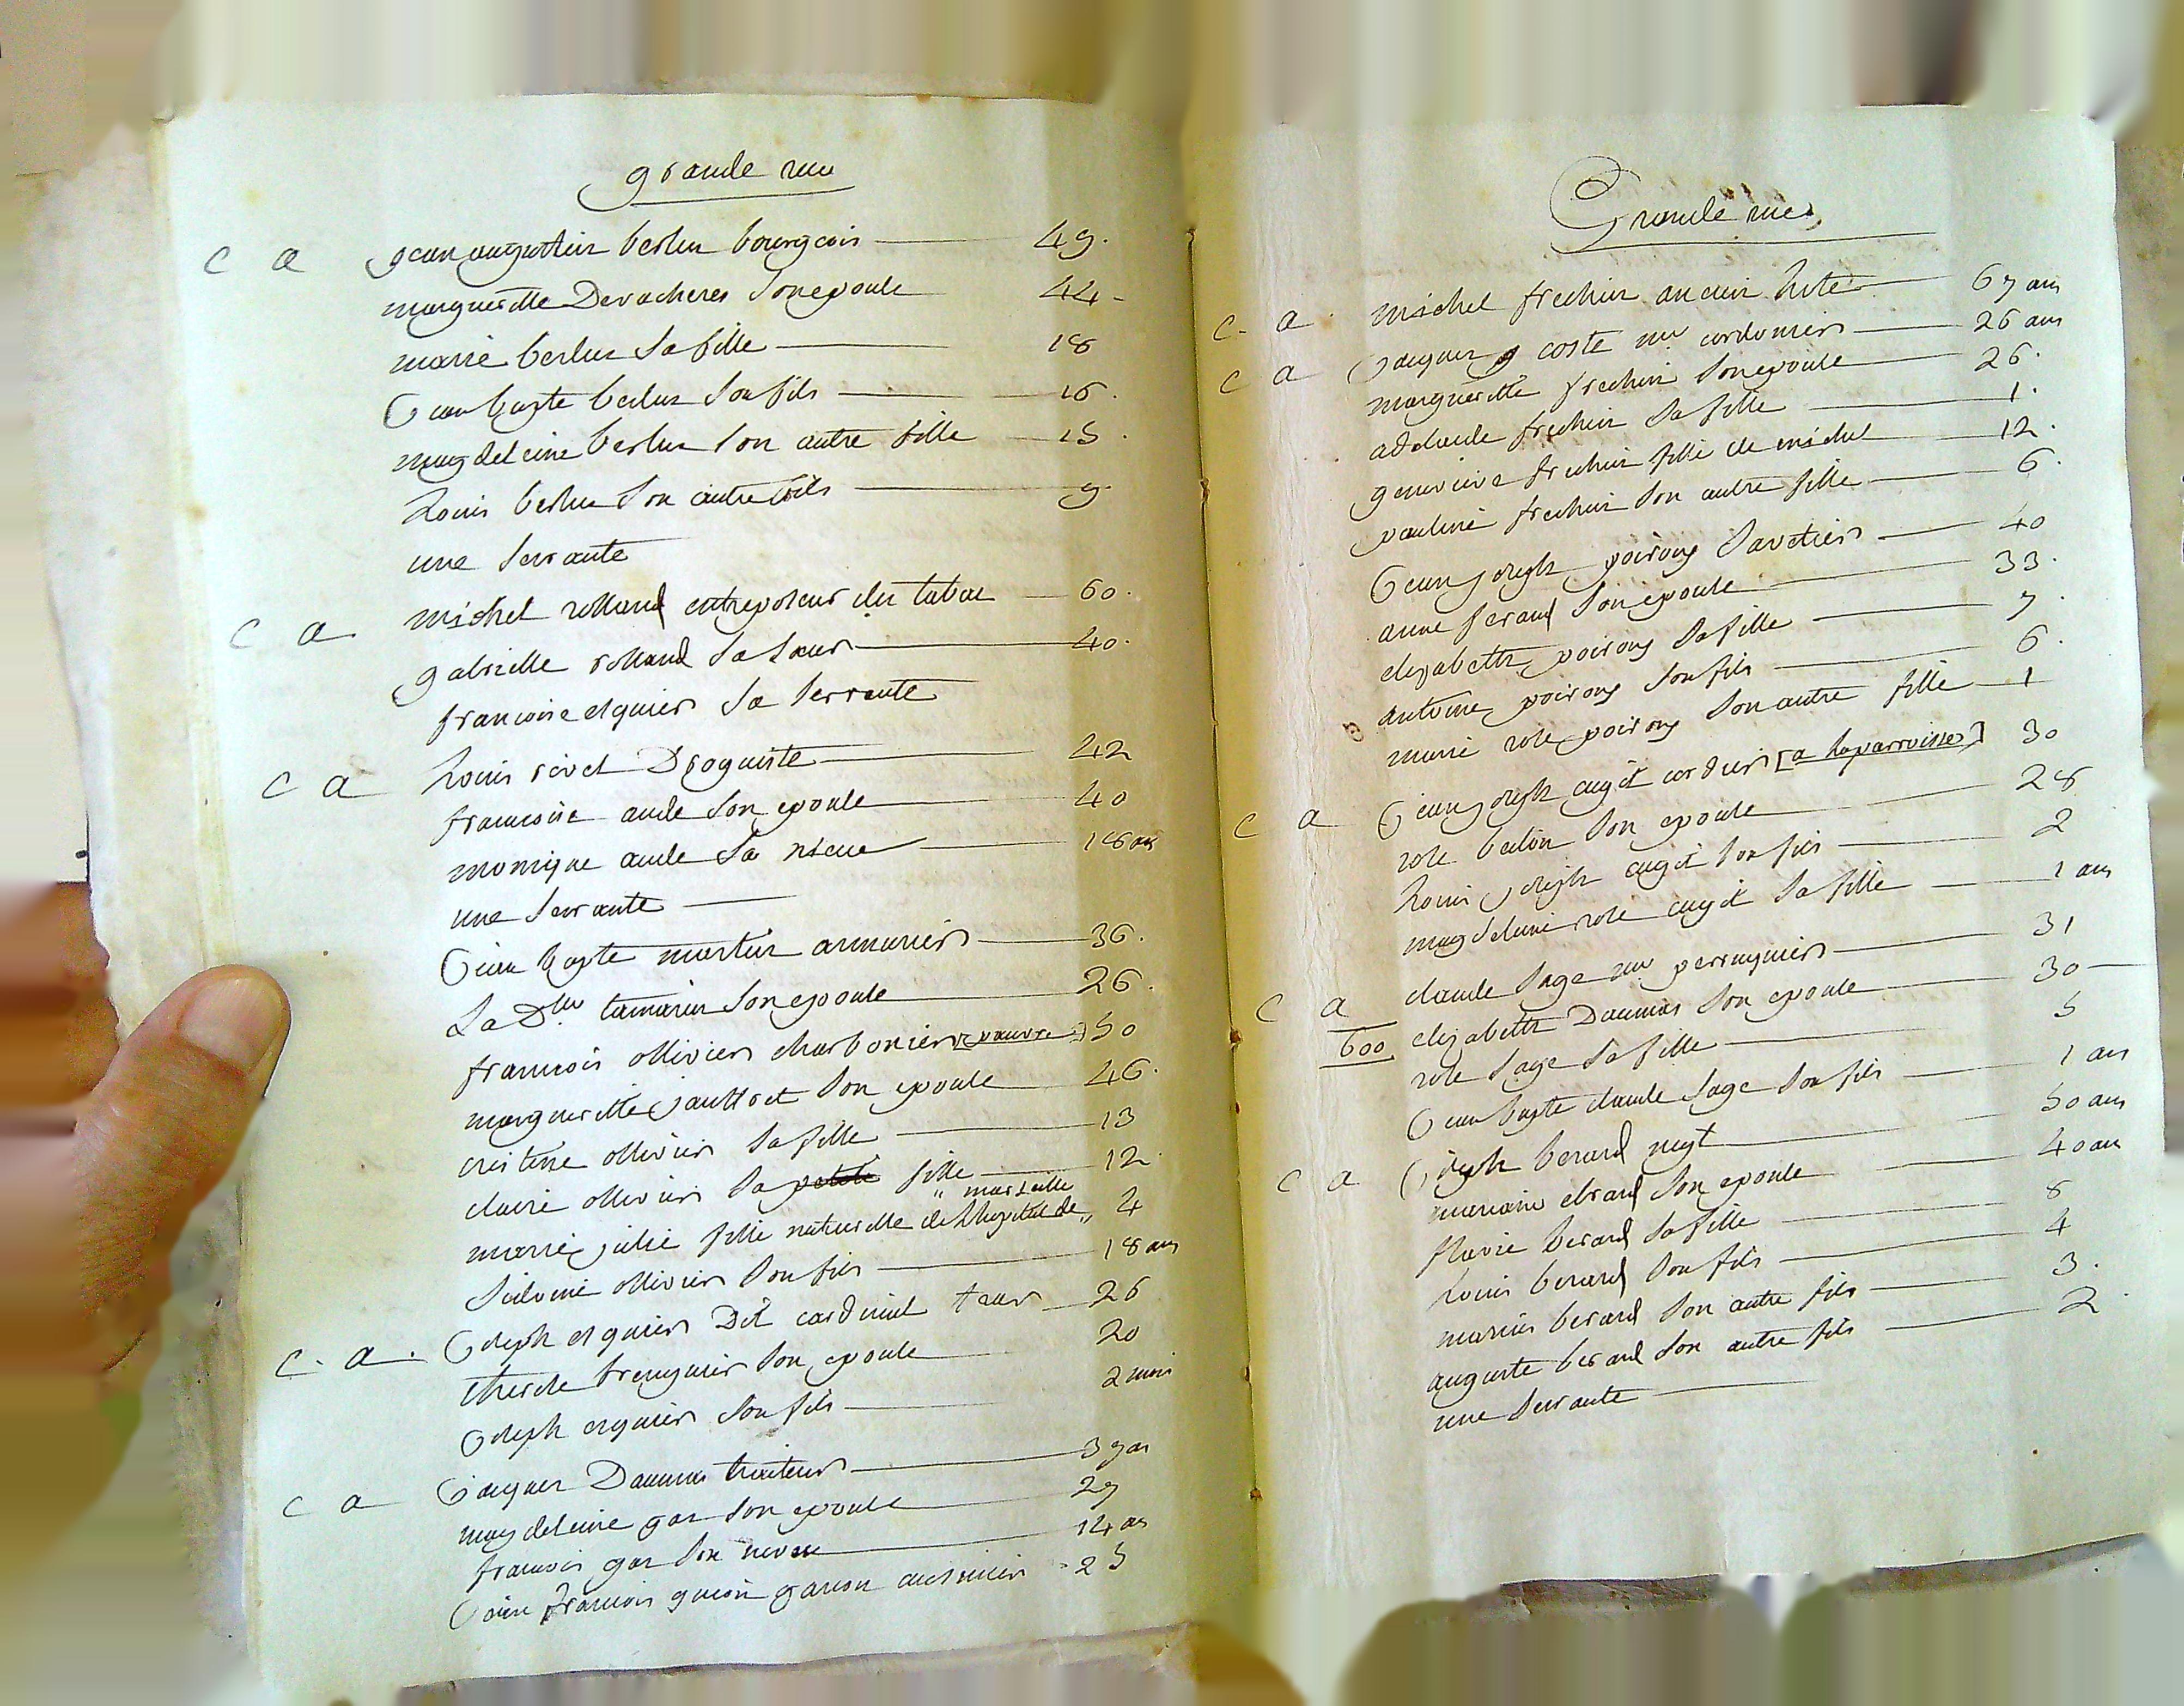 grande rue
c a jean augustin berlue bourgeois 49.
margueritte Devacheres son epouse 44
marie berlue sa fille 18
jean bapte berlue son fils 16.
magdeleine berlue son autre fille 15.
Louis berlue son autre fils 9
une servante
c a michel rolland entreposeur du tabac 60.
gabrielle rolland sa soeur 40.
francoise elguier sa servante
c a Louis rivet Droguiste 42
francoise aude son epouse 40
monique aude sa niece 18 ans
une servante
jean bapte martin armurier 36.
La Dlle tamarin son epouse 26.
francois ollivier charbonier [pauvre] 50
margueritte jauffret son epouse 46.
cristine ollivier sa fille 13
claire ollivier sa petite fille 12
" marseille
marie julie fille naturelle de Lhopital de " 4
ollivier son fils 18 ans
c. a. joseph elguier Dit cardinal 26
therese son epouse 20
joseph elguier son fils 2 mois
c a jaques Daumas traiteur 37 ans
magdeleine gas son epouse 27
francois gas son neveu 14 ans
jean francois guion garson cuisinier 25
Grande rue
c. a. michel frechier ancien hote 67 ans
c a jaques coste me cordonier 26 ans
margueritte frechier son epouse 26.
adelaide frechier sa fille 1.
genevieve frechier fille de michel 12.
pauline frechier son autre fille 6.
jean joseph poirony savetier 40
anne feraud son epouse 33.
elizabeth poirony sa fille 7.
antoine poirony son fils 6.
marie rose poirony son autre fille 1
c a jean joseph augit cordier [a la parroisse] 30
rose son epouse 28
Louis joseph augit son fils 2
magdeleine rose augit sa fille 1 ans
c a claude sage me perruquier 31
600 elizabeth Daumas son epouse 30
rose sage sa fille 5
jean bapte claude sage son fils 1 ans
c a joseph berard negt 50 ans
mariane ebrard son epouse 40 ans
flavie berard sa fille 8
Louis berard son fils 4
marius berard son autre fils 3.
auguste berard son autre fils 2
une servante